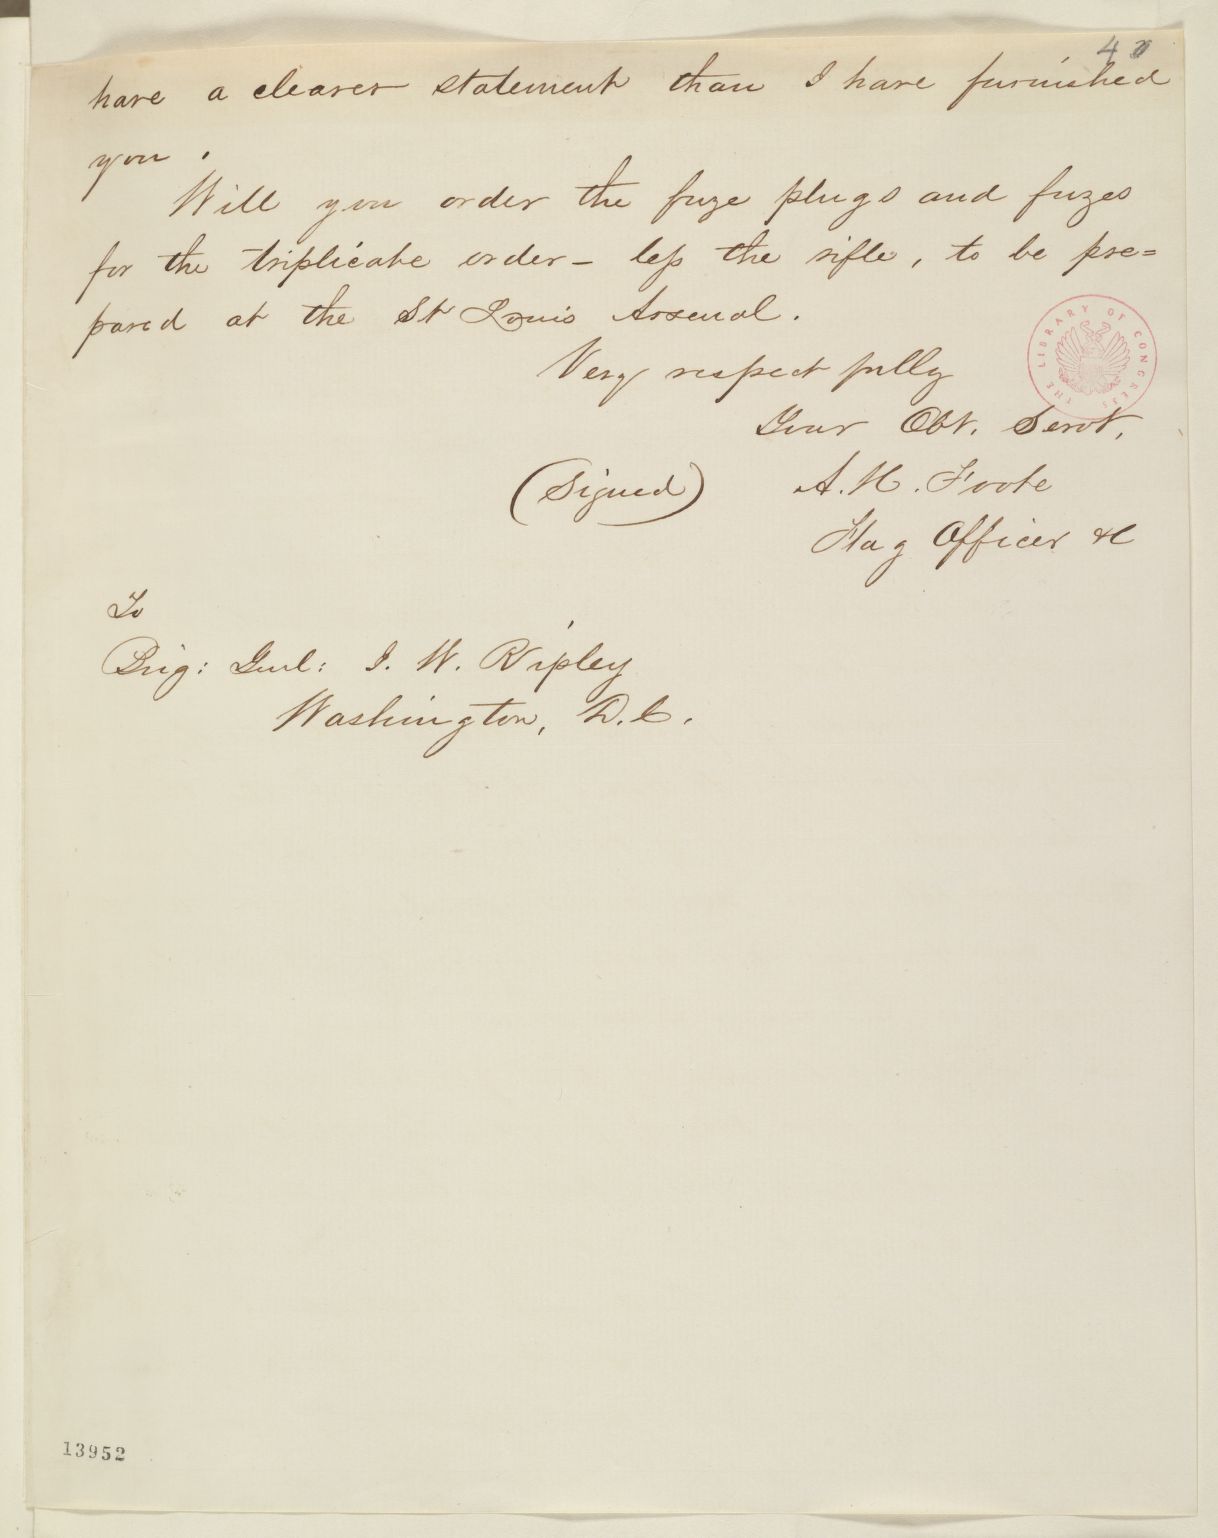 40
have a clearer statement than I have furnished
you.
Will you order the fuze plugs and fuzes
for the triplicate order – less the rifle, to be pre=
pared at the St Louis Arsenal.
Very respectfully
Your Obt. Servt,
(Signed) A. H. Foote
Flag Officer &c
To
Brig: Genl: J. W. Ripley
Washington, D.C.
THE LIBRARY OF CONGRESS
13952